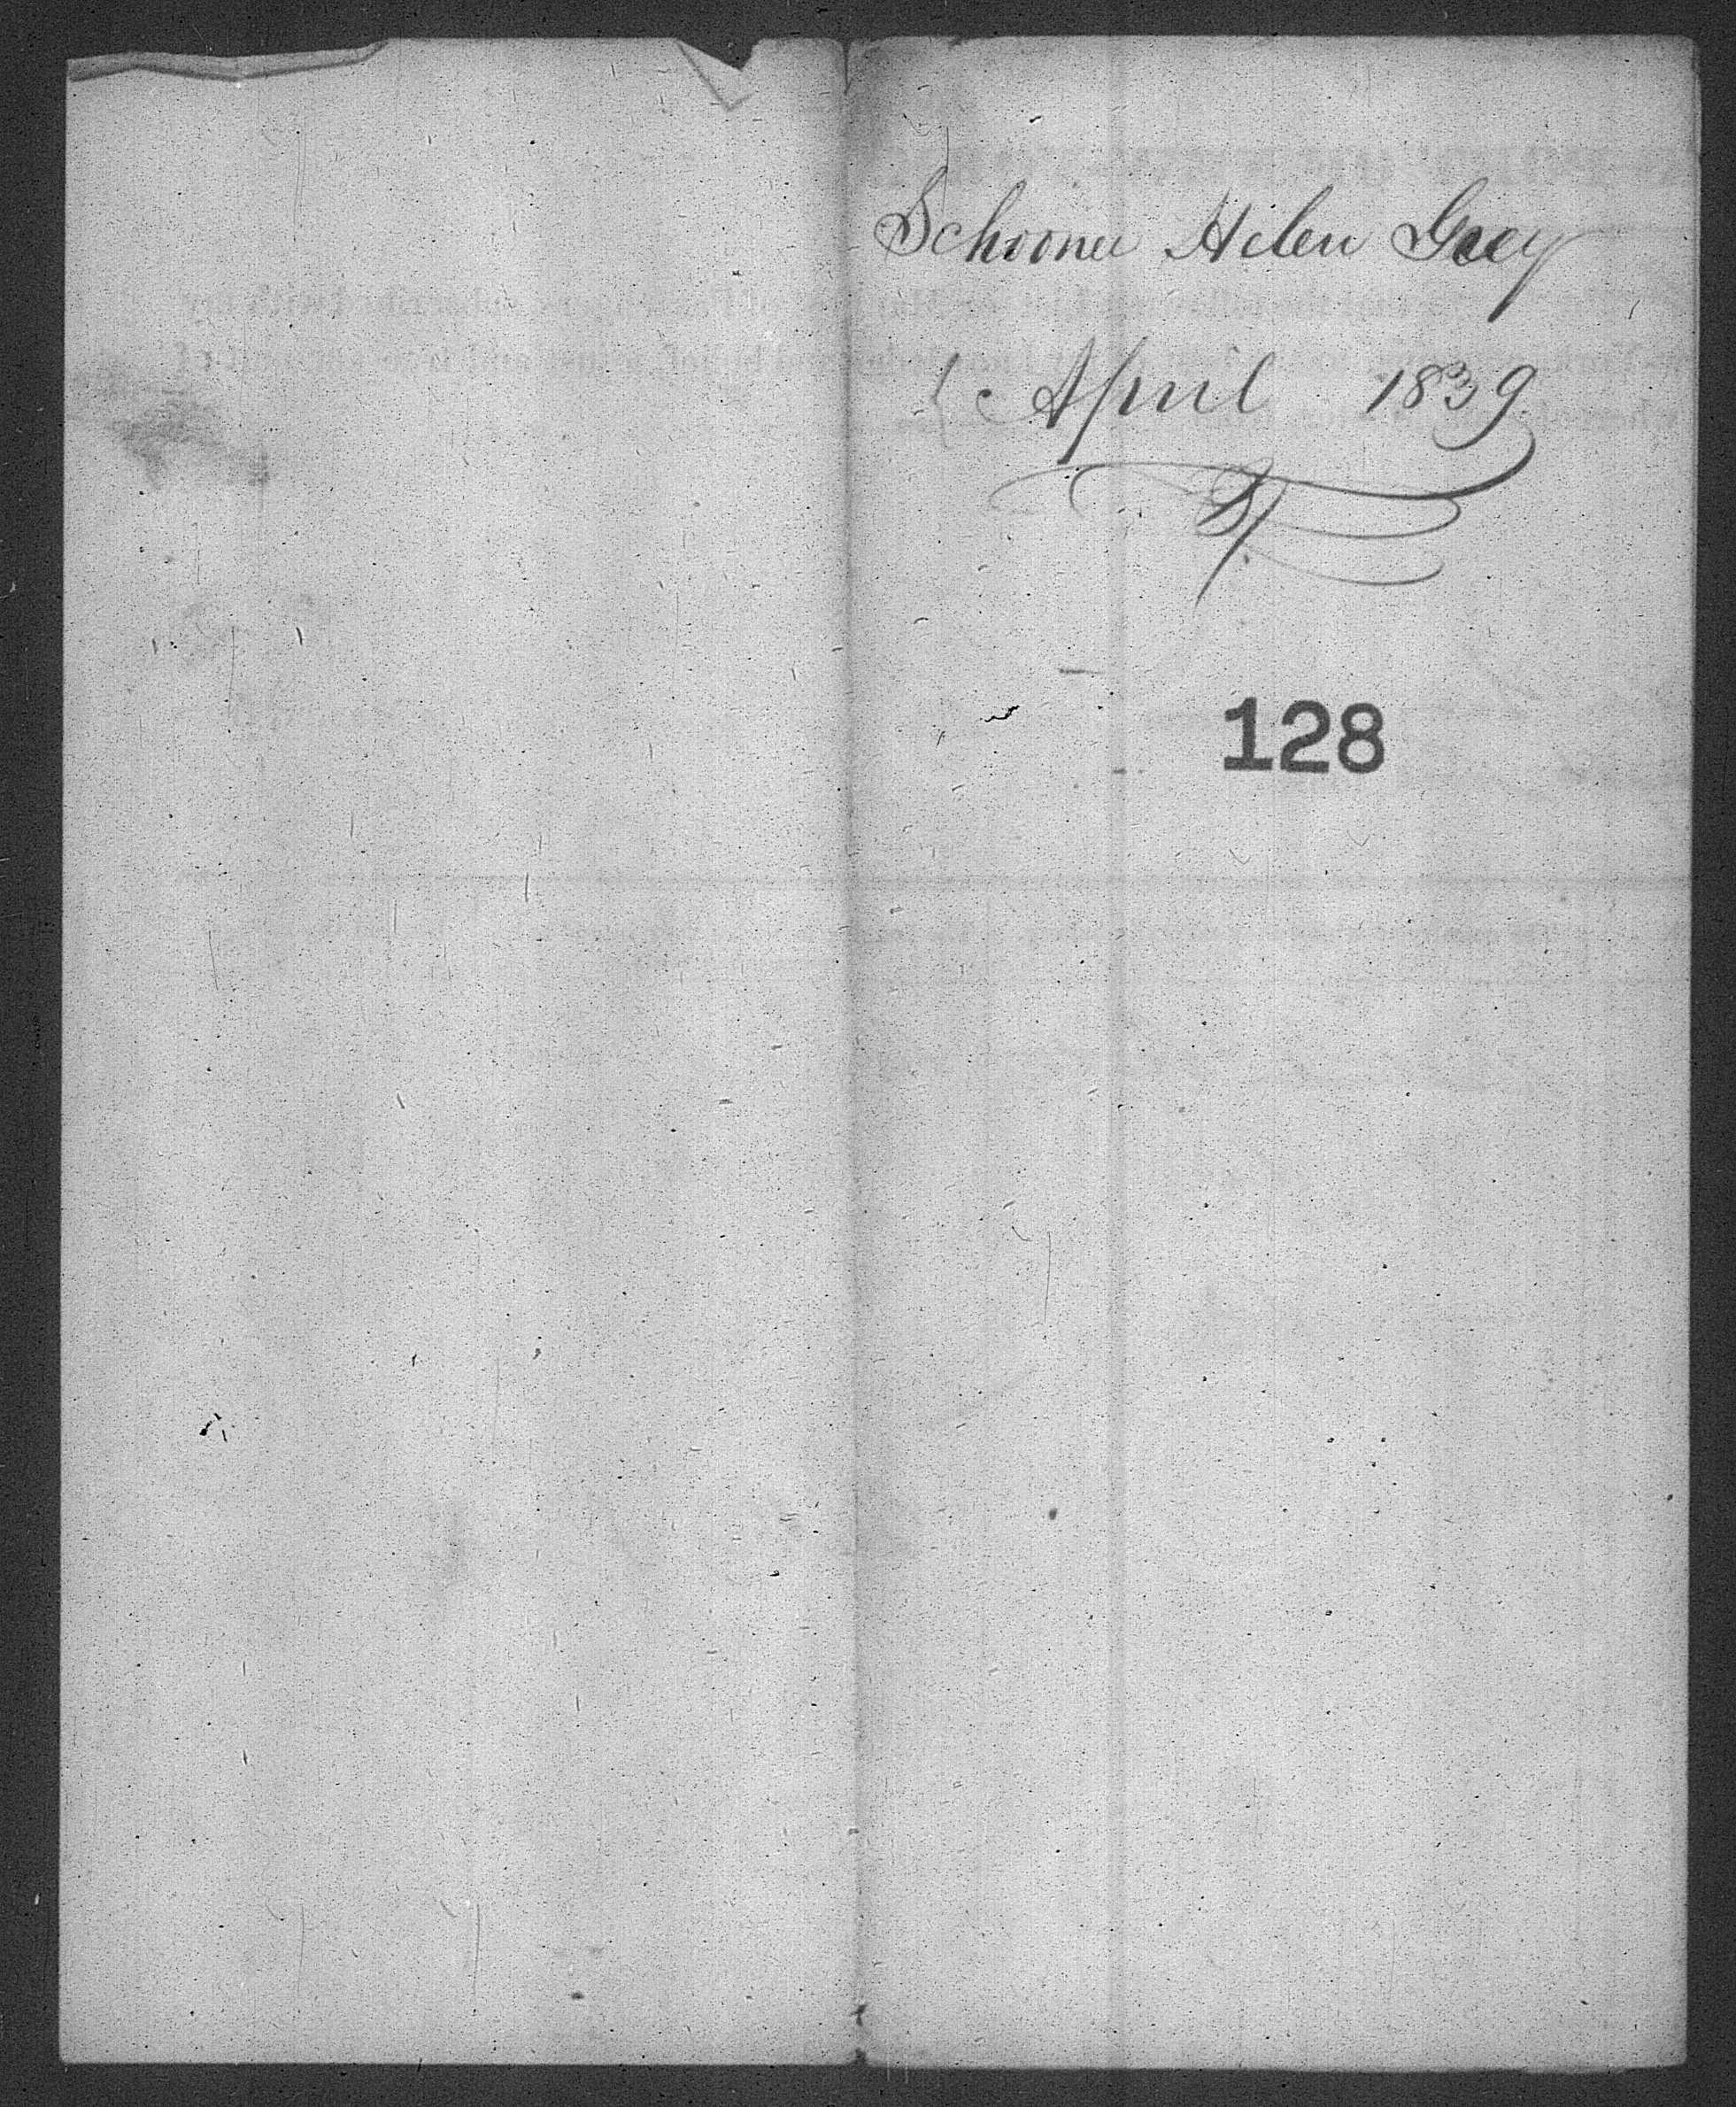 Schooner Helen Grey
April 1839
128